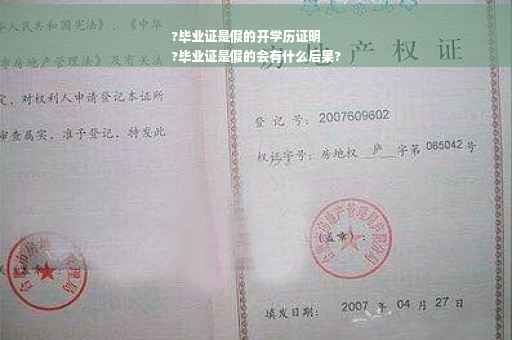 ?毕业证是假的开学历证明
?毕业证是假的会有什么后果?
人民共和国宪法》、《中华
房地产管理法》及有关法
定，对权利人申请登记本证所
审查属实，准予登记，特发此
房地产权证
登 记 号：2007609602
权证字号：房地权 庐 字第 085042 号
（盖章）：
填发日期： 2007 年 04 月 27 日